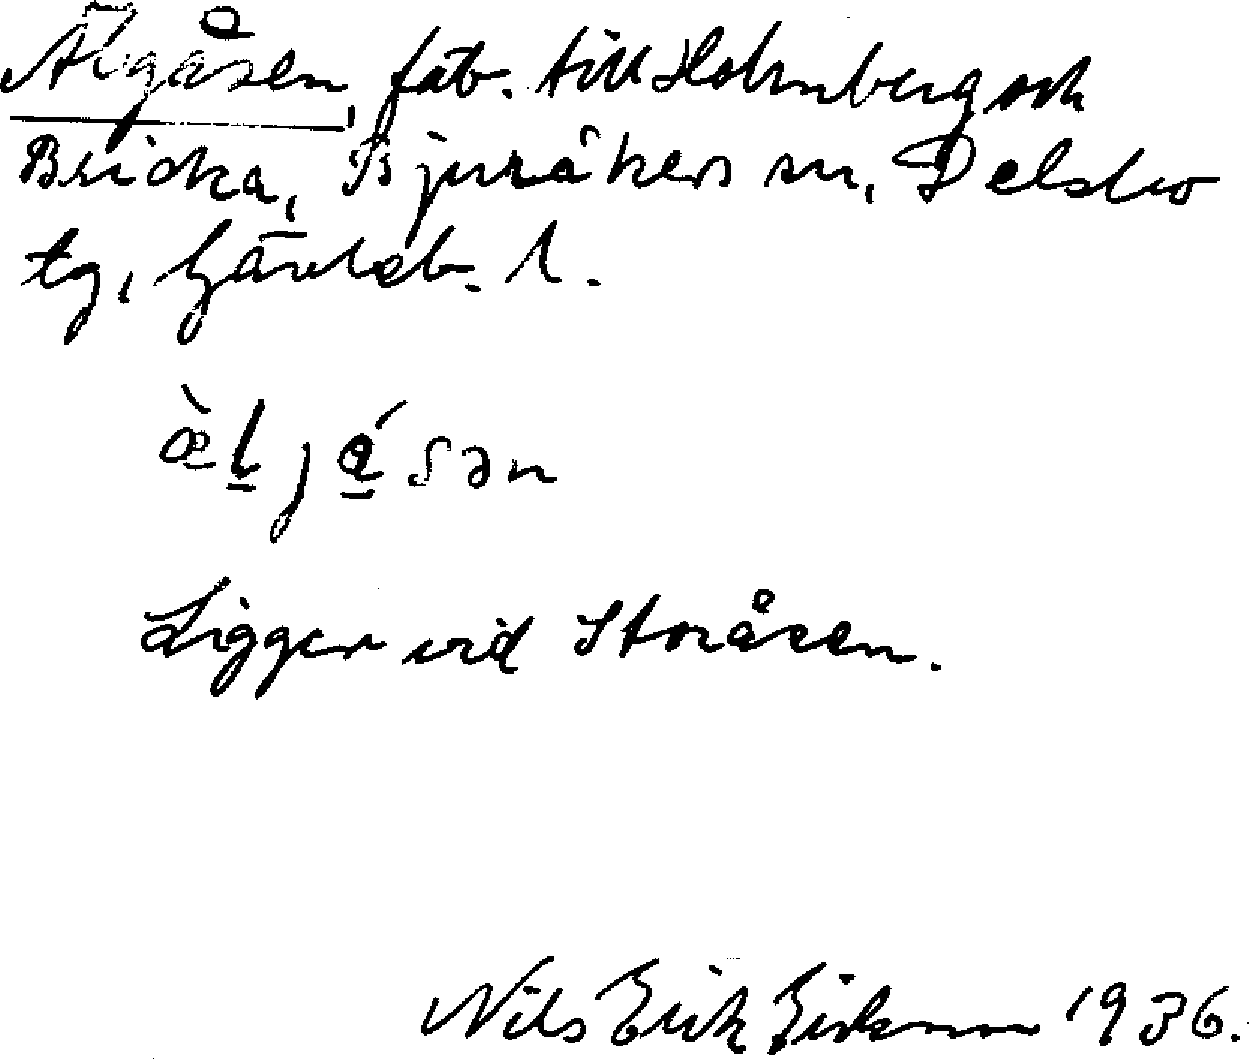 Älgåsen, fäb. till Holmberg och
Bricka, Bjuråkers sn, Delsbo
tg, Gävleb. l.
æ̀l̠ją́sən
Ligger vid Storåsen.
Nils Erik Eriksson 1936.